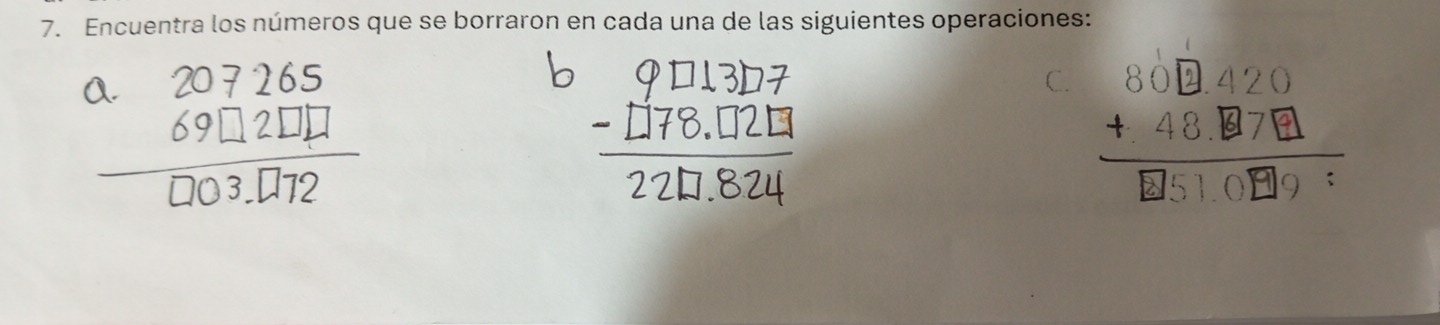 7. Encuentra los números que se borraron en cada una de las siguientes operaciones:
a. 207 265
69□2□□
□03.□72
b 9□13□7
- □78.□2□
22□.824
c. 802.420
+ 48.67
51.099 :